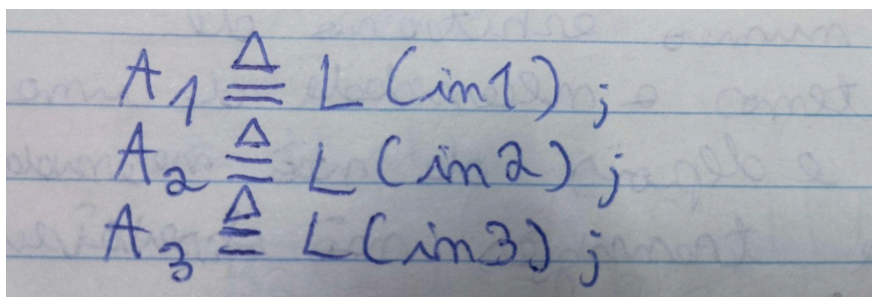 A₁ ≜ L(in1);
A₂ ≜ L(in2);
A₃ ≜ L(in3);